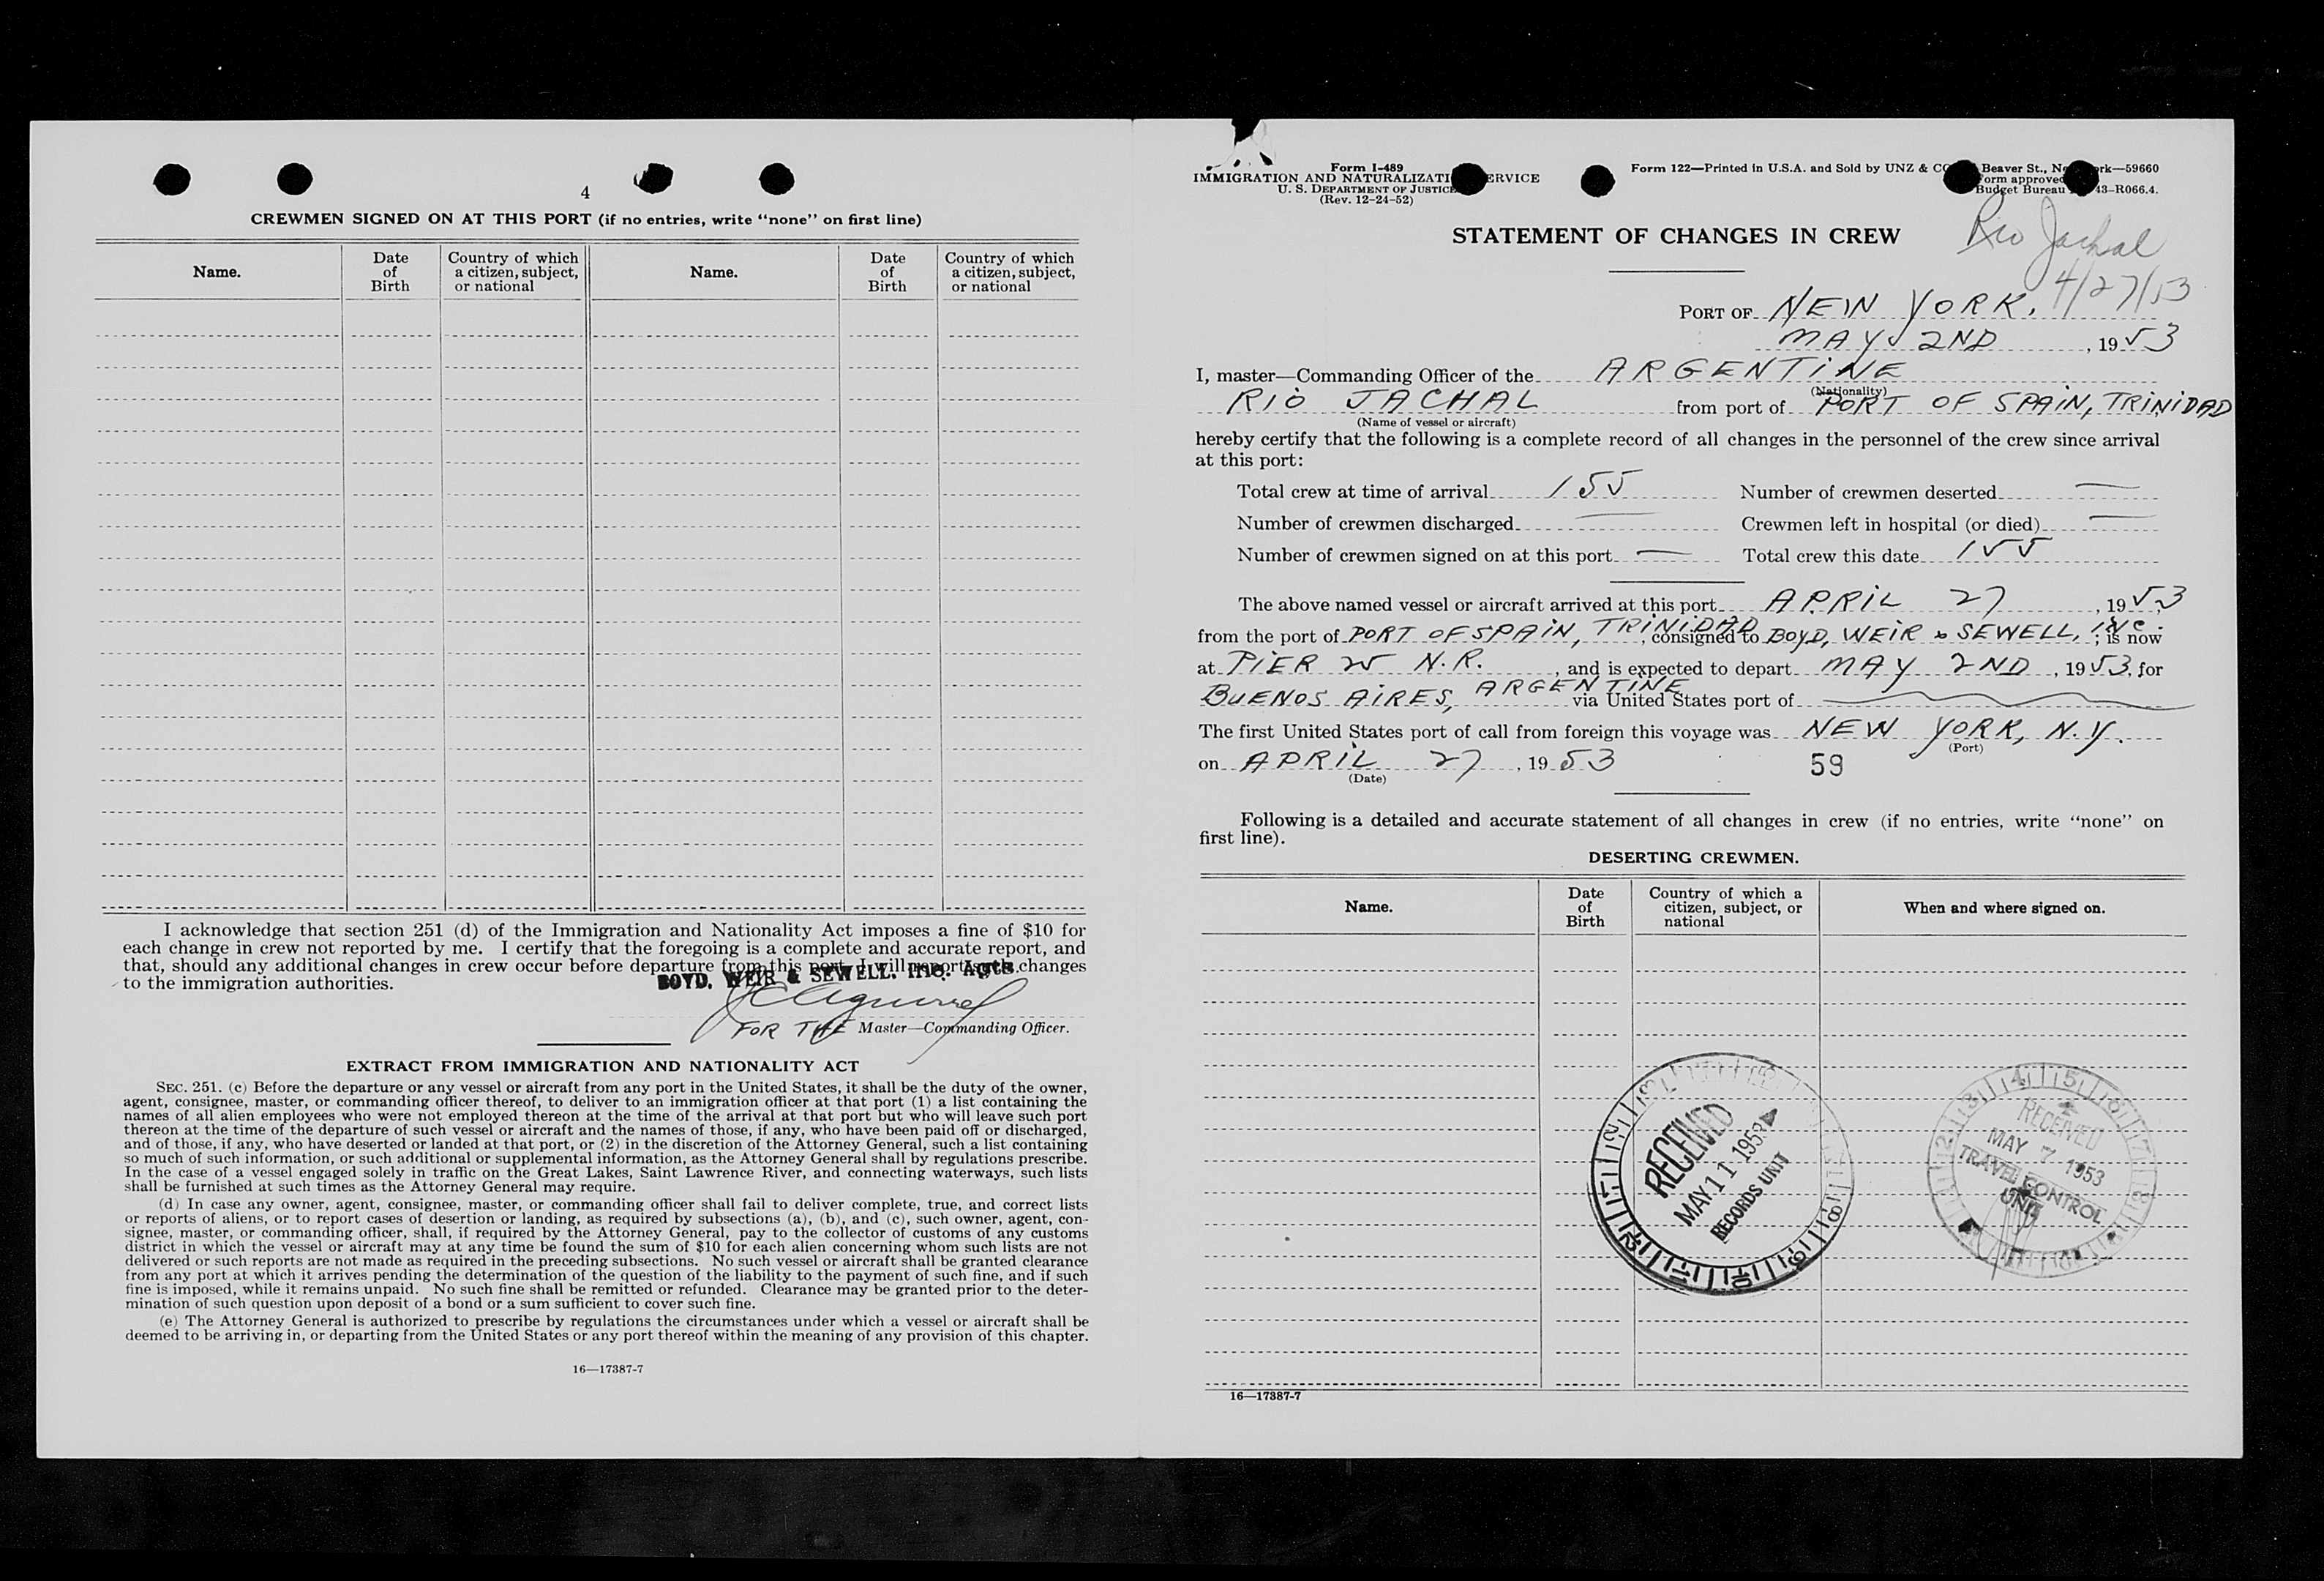 4
CREWMEN SIGNED ON AT THIS PORT (if no entries, write “none” on first line)
Name.
Date of Birth
Country of which a citizen, subject, or national
Name.
Date of Birth
Country of which a citizen, subject, or national
I acknowledge that section 251 (d) of the Immigration and Nationality Act imposes a fine of $10 for
each change in crew not reported by me. I certify that the foregoing is a complete and accurate report, and
that, should any additional changes in crew occur before departure from this port, I will report such changes
to the immigration authorities.
BOYD, WEIR & SEWELL. Inc. Agts.
FOR THE Master—Commanding Officer.
EXTRACT FROM IMMIGRATION AND NATIONALITY ACT
SEC. 251. (c) Before the departure or any vessel or aircraft from any port in the United States, it shall be the duty of the owner,
agent, consignee, master, or commanding officer thereof, to deliver to an immigration officer at that port (1) a list containing the
names of all alien employees who were not employed thereon at the time of the arrival at that port but who will leave such port
thereon at the time of the departure of such vessel or aircraft and the names of those, if any, who have been paid off or discharged,
and of those, if any, who have deserted or landed at that port, or (2) in the discretion of the Attorney General, such a list containing
so much of such information, or such additional or supplemental information, as the Attorney General shall by regulations prescribe.
In the case of a vessel engaged solely in traffic on the Great Lakes, Saint Lawrence River, and connecting waterways, such lists
shall be furnished at such times as the Attorney General may require.
(d) In case any owner, agent, consignee, master, or commanding officer shall fail to deliver complete, true, and correct lists
or reports of aliens, or to report cases of desertion or landing, as required by subsections (a), (b), and (c), such owner, agent, con-
signee, master, or commanding officer, shall, if required by the Attorney General, pay to the collector of customs of any customs
district in which the vessel or aircraft may at any time be found the sum of $10 for each alien concerning whom such lists are not
delivered or such reports are not made as required in the preceding subsections. No such vessel or aircraft shall be granted clearance
from any port at which it arrives pending the determination of the question of the liability to the payment of such fine, and if such
fine is imposed, while it remains unpaid. No such fine shall be remitted or refunded. Clearance may be granted prior to the deter-
mination of such question upon deposit of a bond or a sum sufficient to cover such fine.
(e) The Attorney General is authorized to prescribe by regulations the circumstances under which a vessel or aircraft shall be
deemed to be arriving in, or departing from the United States or any port thereof within the meaning of any provision of this chapter.
16—17387-7
Form I-489
IMMIGRATION AND NATURALIZATI ERVICE
U. S. DEPARTMENT OF JUSTICE
(Rev. 12-24-52)
Form 122—Printed in U.S.A. and Sold by UNZ & CO Beaver St., N rk—59660
orm approved
Budget Bureau 43-R066.4.
STATEMENT OF CHANGES IN CREW
Rio Jachal
4/27/53
PORT OF NEW YORK.
MAY 2ND, 1953
I, master—Commanding Officer of the ARGENTINE
(Nationality)
RIO JACHAL from port of PORT OF SPAIN, TRINIDAD
(Name of vessel or aircraft)
hereby certify that the following is a complete record of all changes in the personnel of the crew since arrival
at this port:
Total crew at time of arrival 155 Number of crewmen deserted —
Number of crewmen discharged — Crewmen left in hospital (or died) —
Number of crewmen signed on at this port — Total crew this date 155
The above named vessel or aircraft arrived at this port APRIL 27, 1953,
from the port of PORT OF SPAIN, TRINIDAD, consigned to BOYD, WEIR & SEWELL, INC.; is now
at PIER 25 N.R., and is expected to depart MAY 2ND, 1953, for
BUENOS AIRES, ARGENTINE via United States port of
The first United States port of call from foreign this voyage was NEW YORK, N.Y.
(Port)
on APRIL 27, 1953
(Date)
59
Following is a detailed and accurate statement of all changes in crew (if no entries, write “none” on
first line).
DESERTING CREWMEN.
Name.
Date of Birth
Country of which a citizen, subject, or national
When and where signed on.
RECEIVED
MAY 11 1953
RECORDS UNIT
RECEIVED
MAY 7 1953
TRAVEL CONTROL
UNIT
16—17387-7